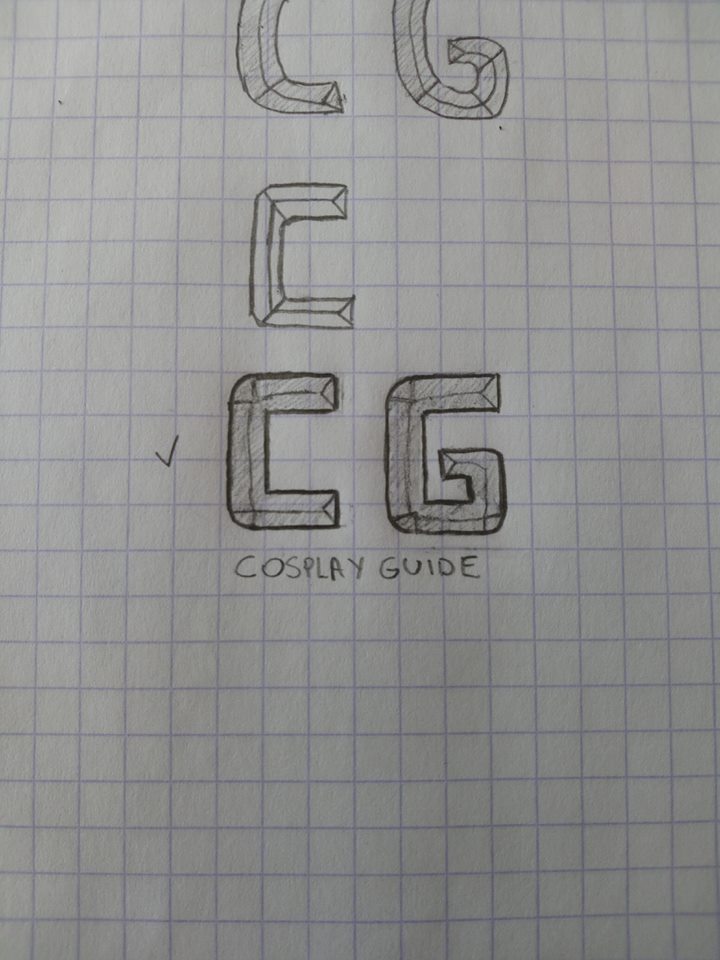 C G
C
C G
COSPLAY GUIDE